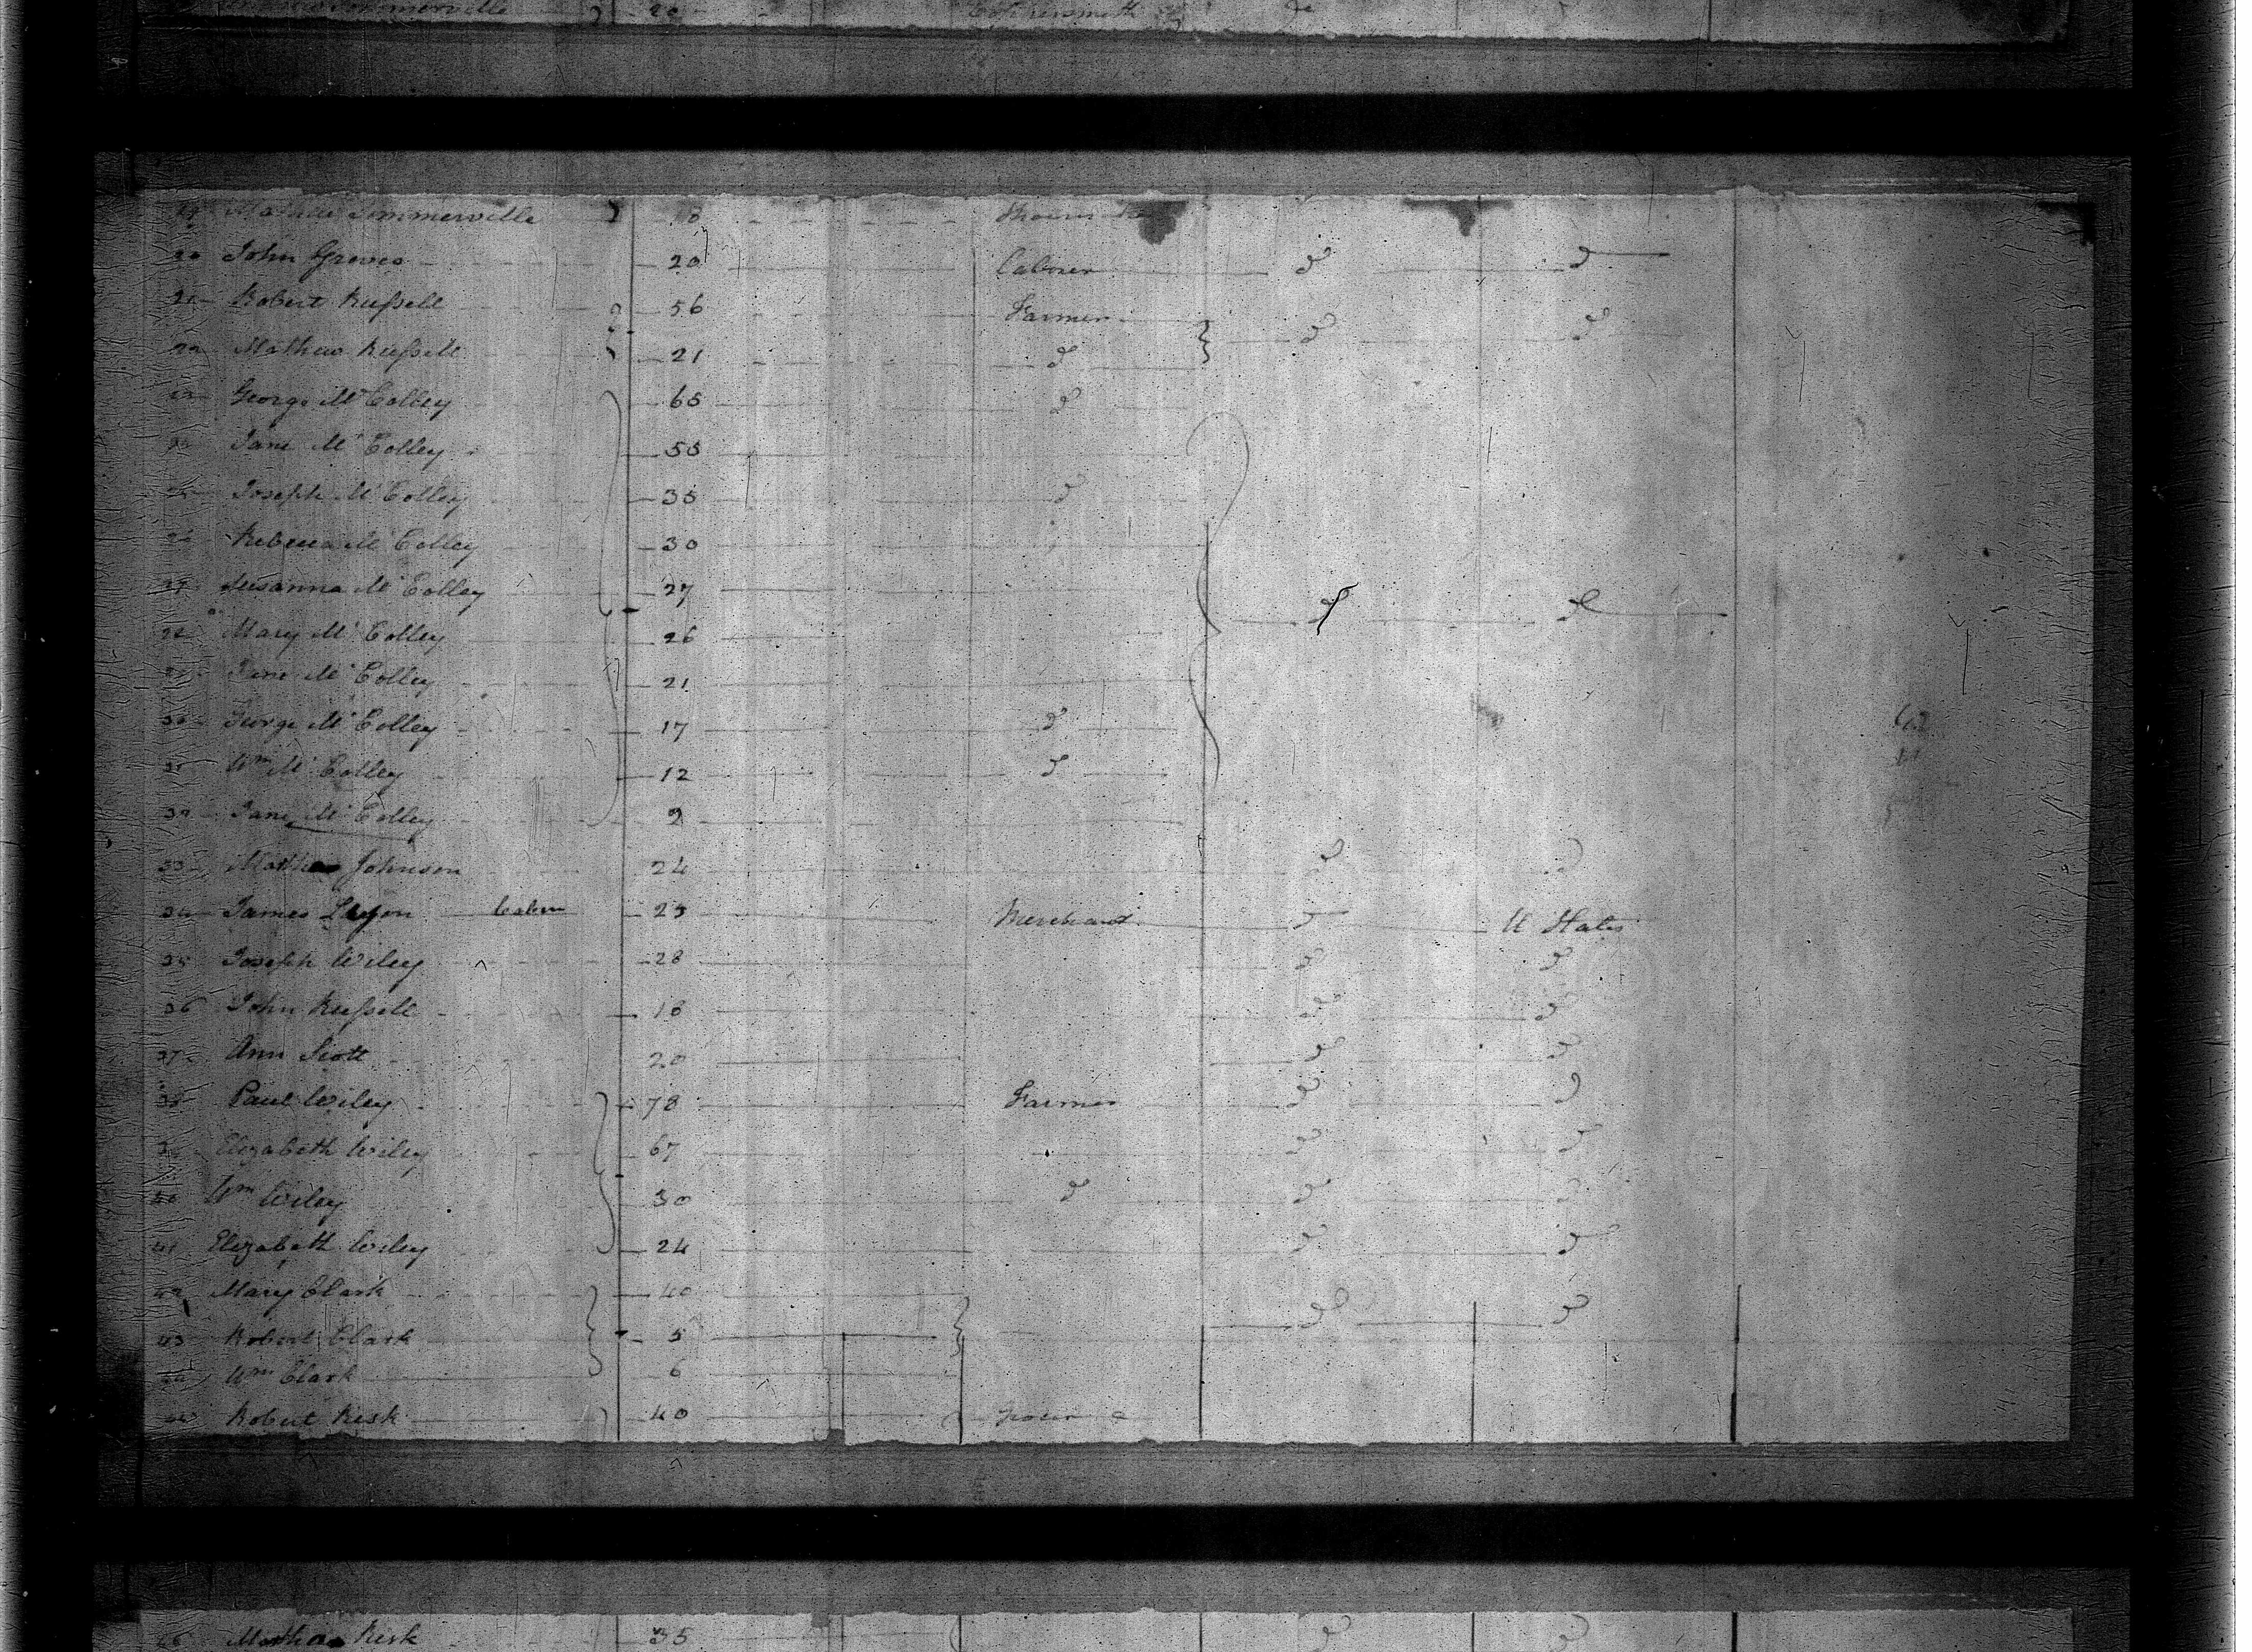 Sommerville 20
19 Sommerville 18
20 John Greves 20 Labourer do do
21 Robert Russell 56 Farmer
22 Mathew Russell 21 do do do
23 George McColley 65 do
24 Jane McColley 55
25 Joseph McColley 35 do
26 Rebecca McColley 30
27 Susanna McColley 27 do do
28 Mary McColley 26
29 Jane McColley 21
30 George McColley 17 do
31 Wm McColley 12 do
32 Jane McColley 2
33 Johnson 24 do do
34 James Cabin 25 Merchant do U States
35 Joseph Wiley 28 do do
36 John Russell 18 do do
37 Ann Scott 20 do do
38 Paul Wiley 78 Farmer do do
39 Elizabeth Wiley 67 do do
40 Wm Wiley 30 do do do
41 Elizabeth Wiley 24 do do
42 Mary Clark 40 do do
43 Robert Clark 5
44 Wm Clark 6
45 Robert Kisk 40
46 Martha Kisk 35 do do